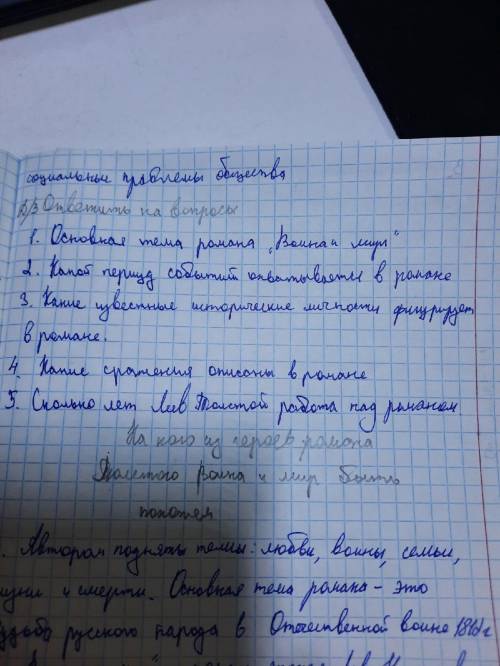 социальные праблемы общества
Д/З Ответить на вопросы
1. Основная тема романа "Воина и мир"
2. Какой период событий охватывается в романе
3. Какие известные исторические личности фигурирует
в романе.
4. Какие сражения описаны в романе
5. Сколько лет Лев Толстой работа над рыманом
На кого из героев романа
Толстого Воина и мир быть
похожем
. Автором подняты темы: любви, воины, семьи,
изни и смерти. Основная тема романа - это
удьба русского народа в Отечественной воине 1812 г